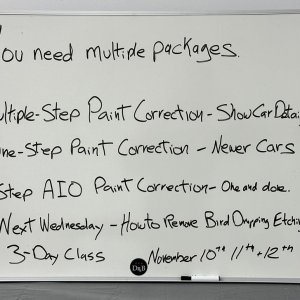 ou need multiple packages.
ultiple-Step Paint Correction - Show Car Detai
ne-Step Paint Correction - Newer Cars
Step AIO Paint Correction - One and done.
Next Wednesday - How to Remove Bird Dropping Etching
3-Day Class November 10th 11th + 12th
D&B